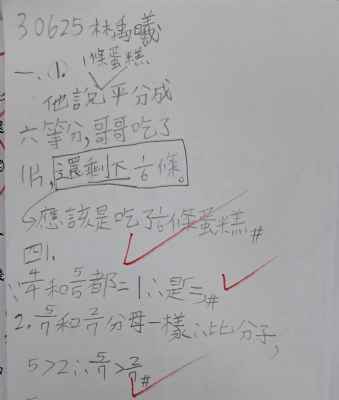 30625 林禹曦
一、(1). 1條蛋糕
他說把平分成
六等分,哥哥吃了
1片,還剩下 1/6 條。
↳應該是吃了1/6條蛋糕#
四1.
∵4/4和5/5都=1∴是=#
2. 5/7和2/7分母一樣∴比分子,
5>2∴5/7>2/7#